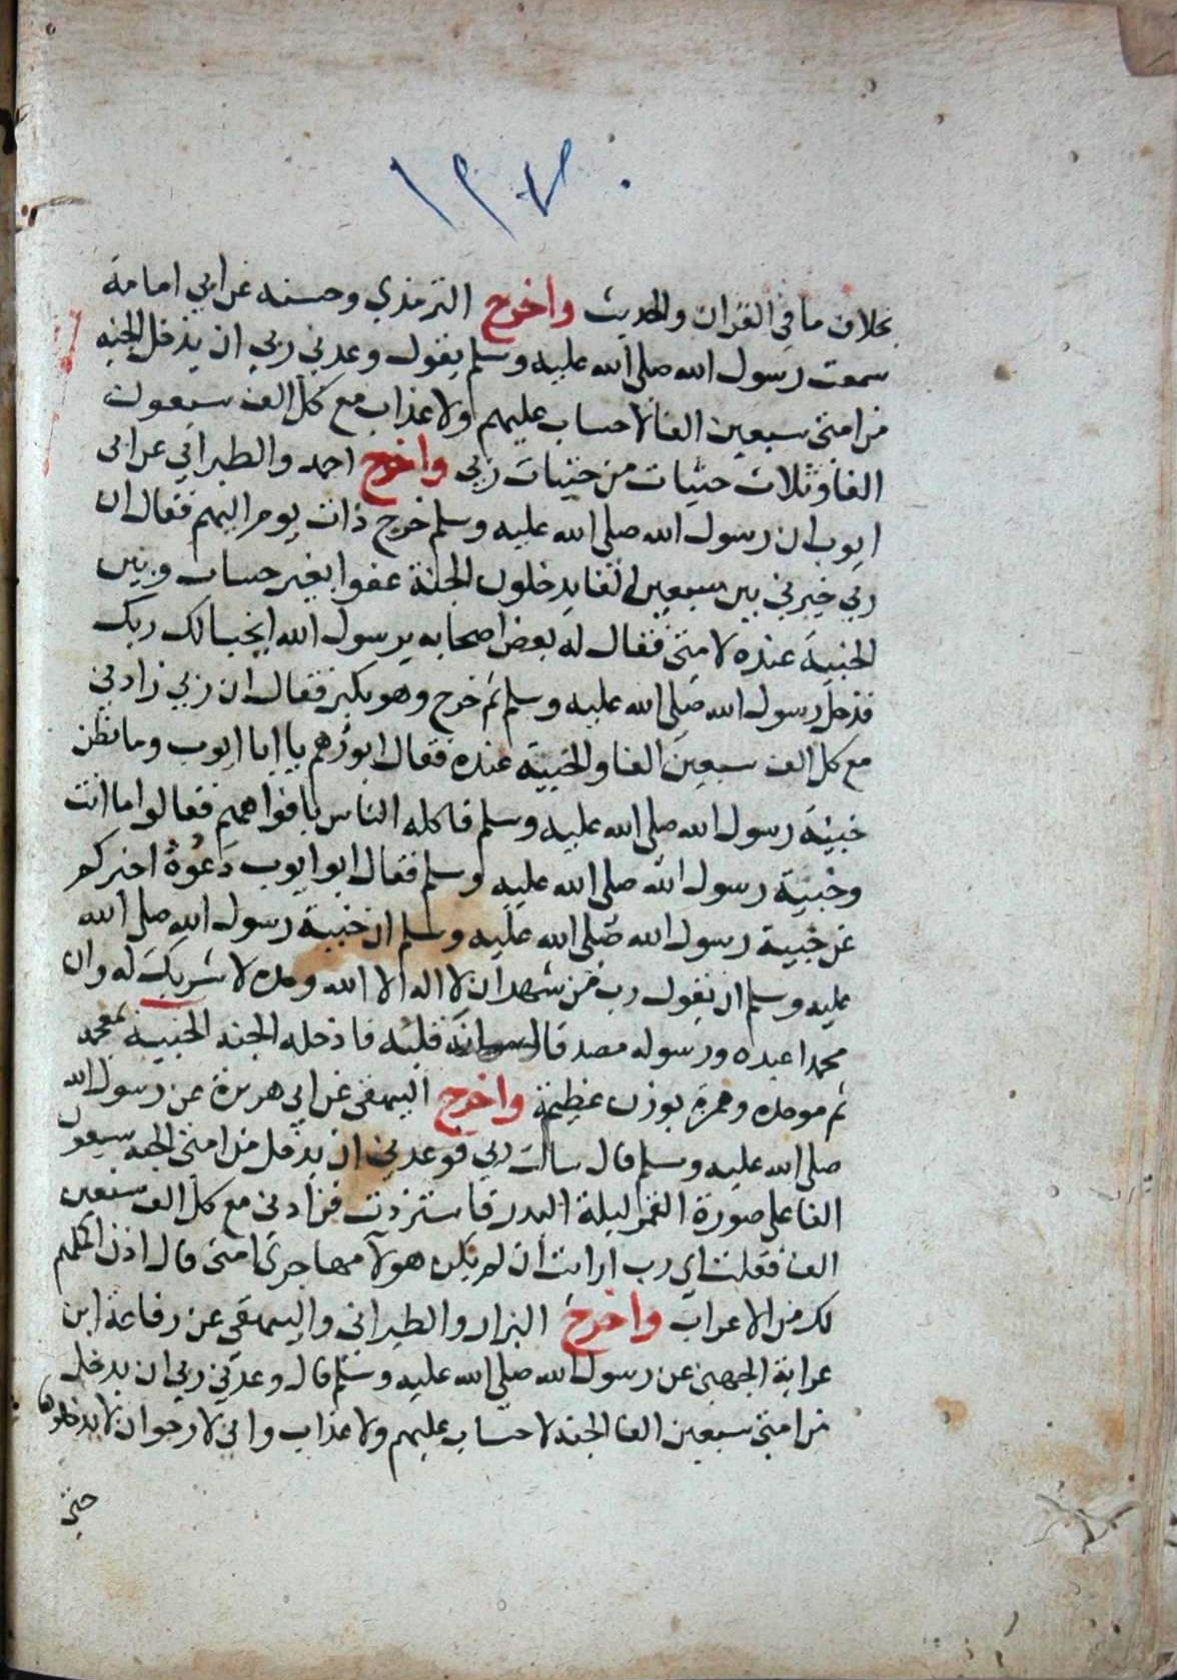 بخلاف ما في القران والحديث واخرج الترمذي وحسنه عن ابي امامة
سمعت رسول الله صلى الله عليه وسلم يقول وعدني ربي ان يدخل الجنه
من امتي سبعين الفا لا حساب عليهم ولا عذاب مع كل الف سبعون
الفا وثلاث حثيات من حثيات ربي واخرج احمد والطبراني عن ابي
ايوب ان رسول الله صلى الله عليه وسلم خرج ذات يوم اليهم فقال ان
ربي خيرني بين سبعين الفا يدخلون الجنة عفوا بغير حساب وبين
الخبية عنده لامتي فقال له بعض اصحابه يرسول الله ايخبا لك ربك
فدخل رسول الله صلى الله عليه وسلم ثم خرج وهو يكبر فقال ان ربي زادني
مع كل الف سبعين الفا والخبية عنده فقال ابو رهم يا ابا ايوب وما تظن
خبية رسول الله صلى الله عليه وسلم فاكله الناس بافواههم فقالوا ما انت
وخبية رسول الله صلى الله عليه وسلم فقال ابو ايوب دعوه اخبركم
عن خبية رسول الله صلى الله عليه وسلم ان خبية رسول الله صلى الله
عليه وسلم ان يقول رب من شهد ان لا اله الا الله وحده لا شريك له وان
محمدا عبده ورسوله مصدقا لسانه قلبه فادخله الجنه الخبية بمعجمه
ثم موحده وهمزة بوزن عظيمة واخرج البيهقي عن ابي هريرة عن رسول الله
صلى الله عليه وسلم قال سالت ربي فوعدني ان يدخل من امتي الجنه سبعون
الفا على صورة القمر ليلة البدر فاستزدت فزادني مع كل الف سبعين
الف فقلت اي رب ارايت ان لم يكن هولآ مهاجري امتي قال اذن اكملهم
لك من الاعراب واخرج البزار والطبراني والبيهقي عن رفاعة ابن
عرابة الجهني عن رسول الله صلى الله عليه وسلم قال وعدني ربي ان يدخل
من امتي سبعين الفا الجنه لا حساب عليهم ولا عذاب واني لارجو ان لا يدخلوها
حتي